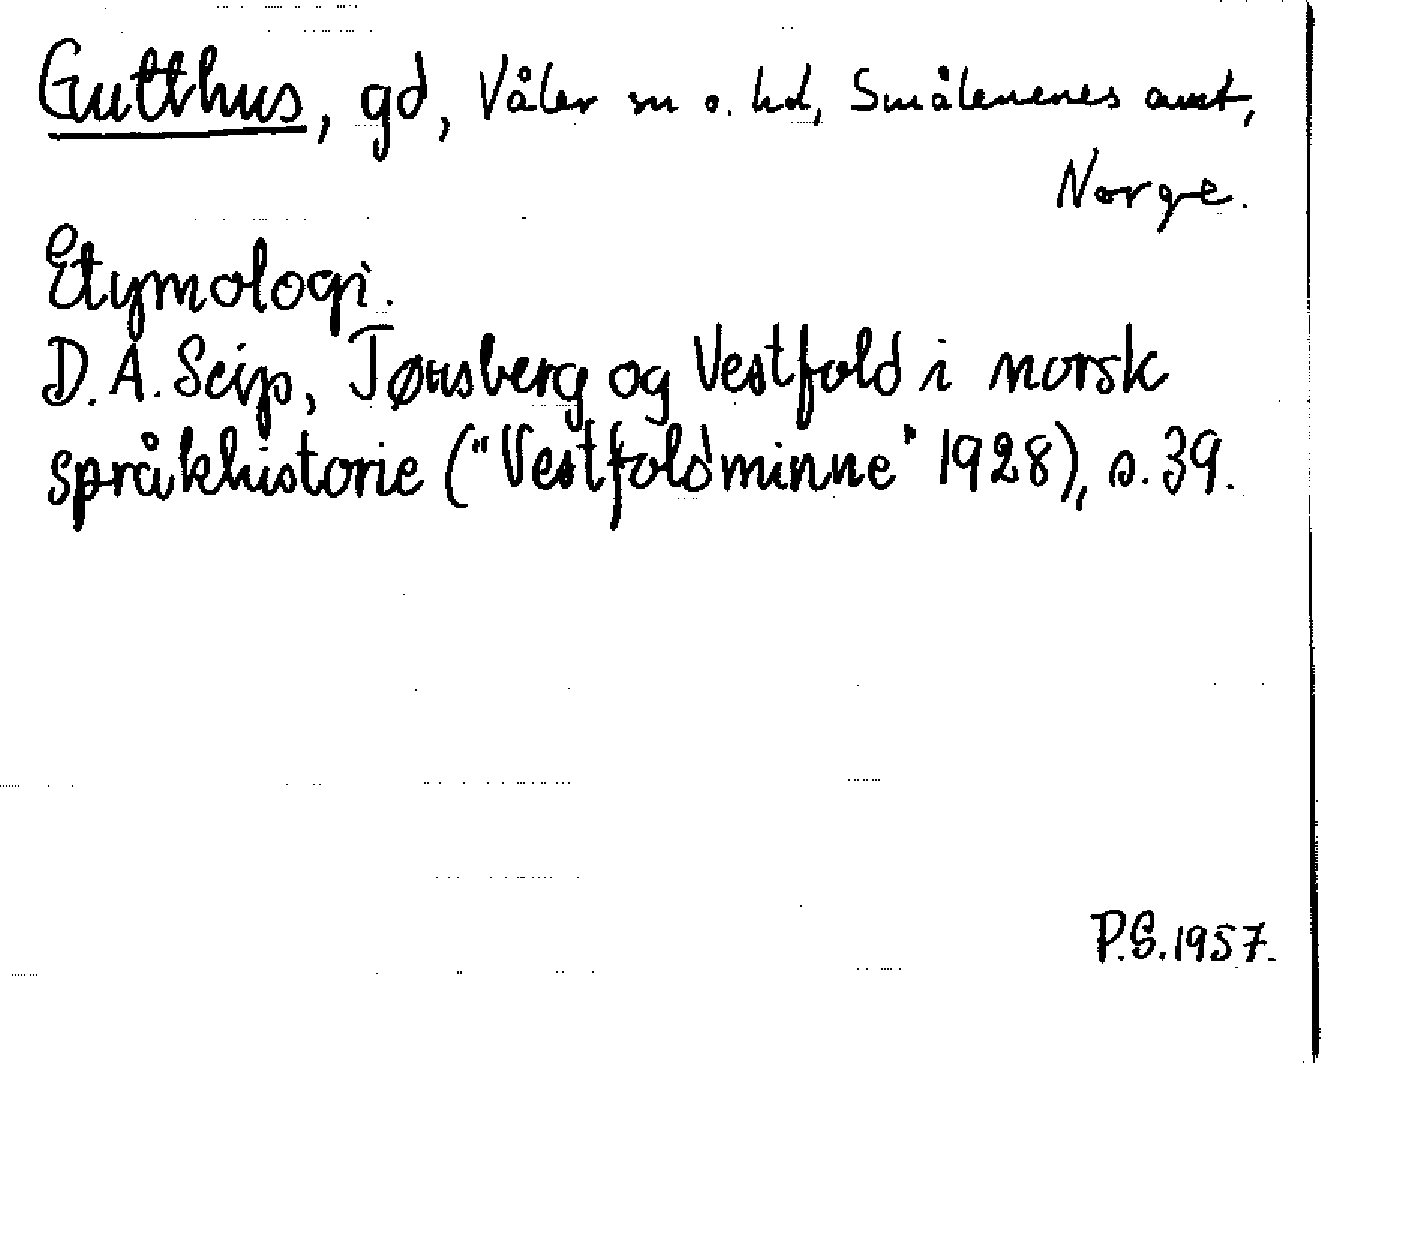 Gutthus, gd, Våler sn o. hd, Smålenenes amt,
Norge.
Etymologi.
D. A. Seip, Tønsberg og Vestfold i norsk
språkhistorie ("Vestfoldminne" 1928), s. 39.
P.S. 1957.